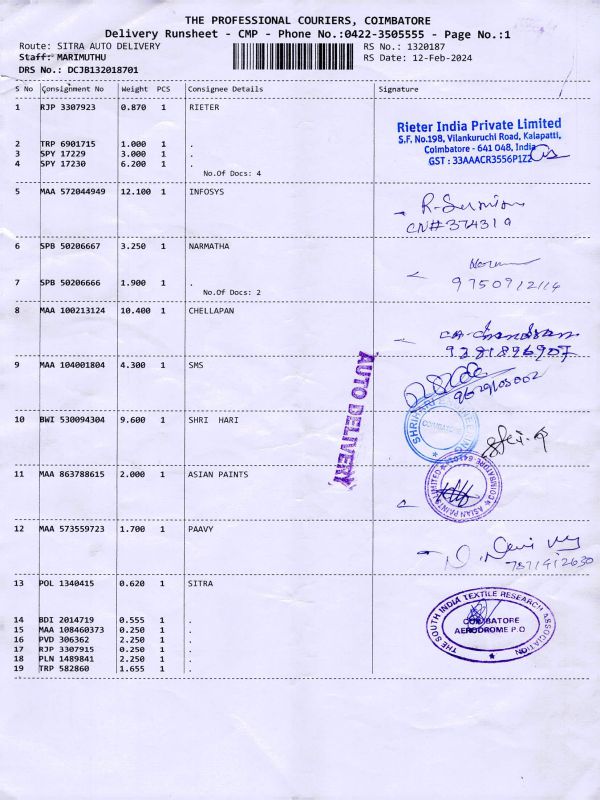 THE PROFESSIONAL COURIERS, COIMBATORE
Delivery Runsheet - CMP - Phone No.:0422-3505555 - Page No.:1
Route: SITRA AUTO DELIVERY RS No.: 1320187
Staff: MARIMUTHU RS Date: 12-Feb-2024
DRS No.: DCJB132018701
S No Consignment No Weight PCS Consignee Details Signature
1 RJP 3307923 0.870 1 RIETER
Rieter India Private Limited
S.F. No.198, Vilankuruchi Road, Kalapatti,
Coimbatore - 641 048, India
GST : 33AAACR3556P1Z2
2 TRP 6901715 1.000 1 .
3 SPY 17229 3.000 1 .
4 SPY 17230 6.200 1 .
No.Of Docs: 4
5 MAA 572044949 12.100 1 INFOSYS
CN# 374319
6 SPB 50206667 3.250 1 NARMATHA
7 SPB 50206666 1.900 1 .
No.Of Docs: 2
9750912114
8 MAA 100213124 10.400 1 CHELLAPAN
9281896907
9 MAA 104001804 4.300 1 SMS
9629105002
AUTO DELIVERY
10 BWI 530094304 9.600 1 SHRI HARI
COIMBATORE
11 MAA 863788615 2.000 1 ASIAN PAINTS
ASIAN PAINTS LIMITED COIMBATORE
12 MAA 573559723 1.700 1 PAAVY
7871412630
13 POL 1340415 0.620 1 SITRA
THE SOUTH INDIA TEXTILE RESEARCH ASSOCIATION
COIMBATORE
AERODROME P.O
14 BDI 2014719 0.555 1 .
15 MAA 108460373 0.250 1 .
16 PVD 306362 2.250 1 .
17 RJP 3307915 0.250 1 .
18 PLN 1489841 2.250 1 .
19 TRP 582860 1.655 1 .